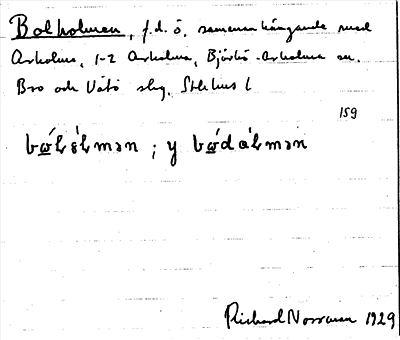 Bolholmen, f.d. ö, sammanhängande med
Arholma, 1-2 Arholma, Björkö-Arholma sn.
Bro och Vätö slg. Sthlms l
159
bώ̨ɫɛ̀ɫmən ; y bώ̨dàɫmən
Richard Norrman 1929